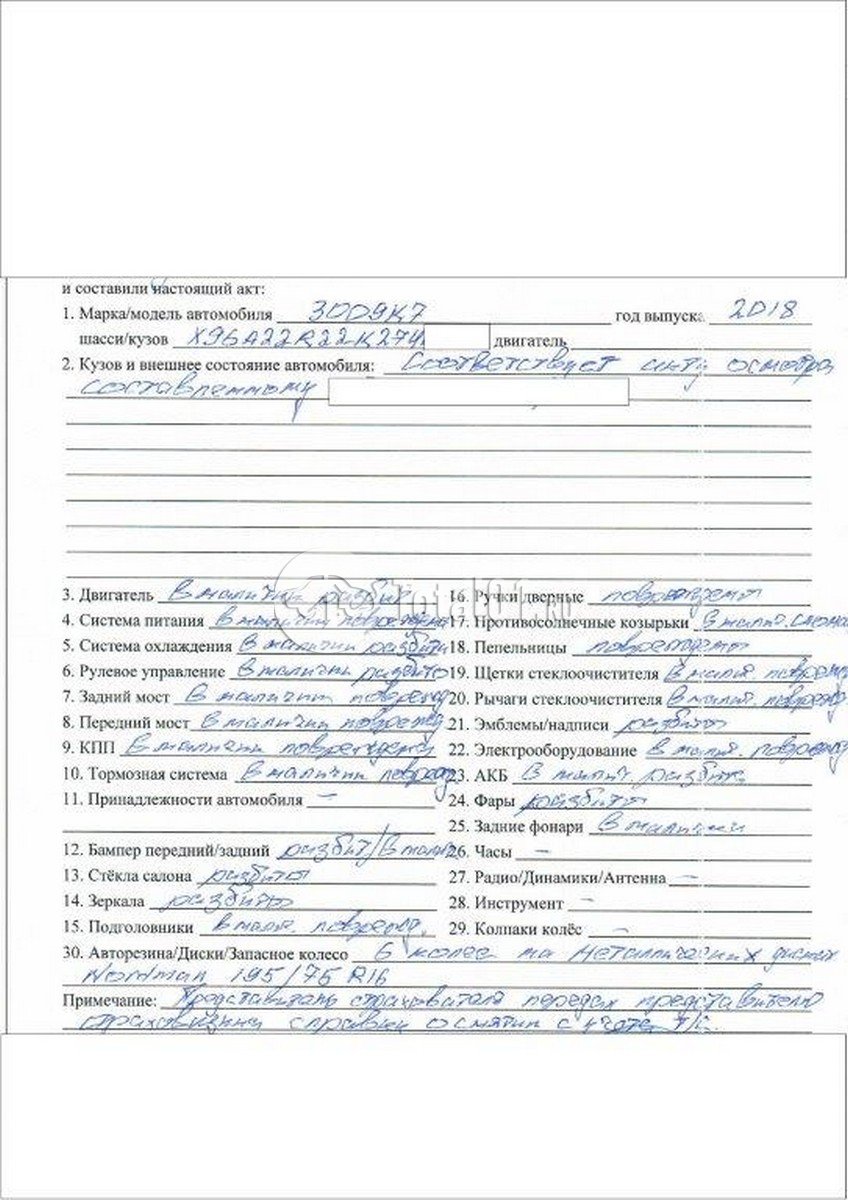 и составили настоящий акт:
1. Марка/модель автомобиля 3009К7 год выпуска 2018
шасси/кузов Х96А22R22К274 двигатель
2. Кузов и внешнее состояние автомобиля: Соответствует акту осмотра
составленному
3. Двигатель В наличии разбит
16. Ручки дверные повреждены
4. Система питания в наличии повреждена
17. Противосолнечные козырьки в налич.
5. Система охлаждения В наличии разбита
18. Пепельницы повреждены
6. Рулевое управление В наличии разбито
19. Щетки стеклоочистителя В налич. поврежд
7. Задний мост В наличии поврежд
20. Рычаги стеклоочистителя В налич. поврежд
8. Передний мост В наличии поврежд
21. Эмблемы/надписи разбиты
9. КПП В наличии повреждена
22. Электрооборудование в налич. поврежд
10. Тормозная система В наличии поврежд
23. АКБ В налич. разбита
11. Принадлежности автомобиля –
24. Фары разбиты
25. Задние фонари В наличии
12. Бампер передний/задний разбит/В налич
26. Часы –
13. Стёкла салона разбиты
27. Радио/Динамики/Антенна –
14. Зеркала разбиты
28. Инструмент –
15. Подголовники в налич. поврежд.
29. Колпаки колёс –
30. Авторезина/Диски/Запасное колесо 6 колес на металлических дисках
Nordman 195/75 R16
Примечание: Представитель страхователя передал представителю
справки о снятии с учета Т/С.
Total01.ru